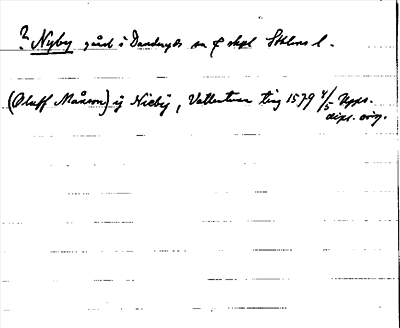 ? Nyby gård i Danderyds sn o skpl Sthlms l.
(Oluff Månson) ij Nieby, Vallentuna ting 1579 4/5 Upps.
dipl. orig.